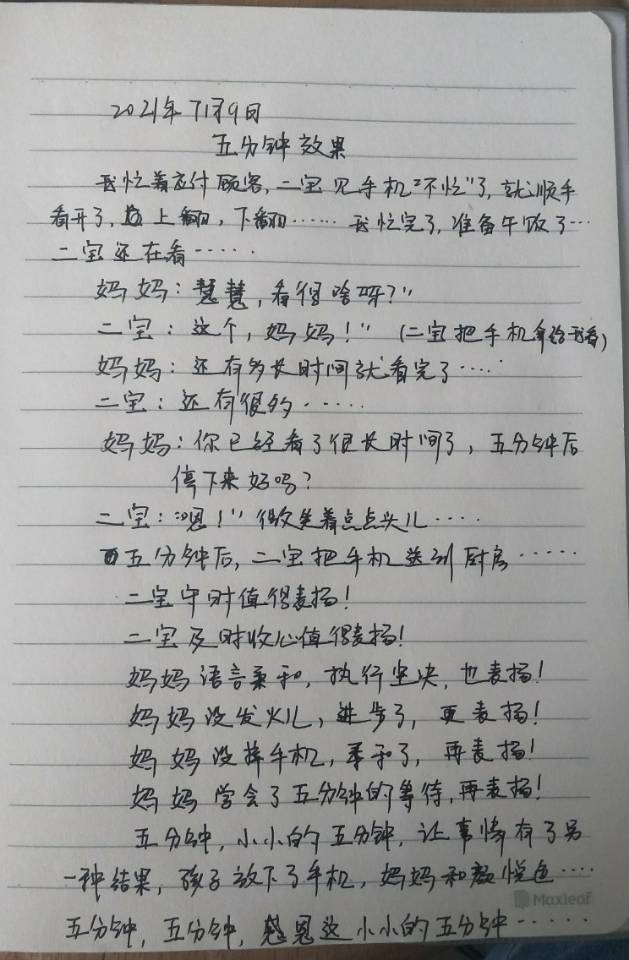 2021年7月9日
五分钟效果
我忙着应付顾客，二宝见手机"不忙"了，就顺手
看开了，上翻，下翻……我忙完了，准备午饭了…
二宝还在看……
妈妈：慧慧，看得啥呀？"
二宝：这个，妈妈！"（二宝把手机拿给我看）
妈妈：还有多长时间就看完了……
二宝：还有很多……
妈妈：你已经看了很长时间了，五分钟后
停下来好吗？
二宝："嗯！"微笑着点点头儿……
五分钟后，二宝把手机送到厨房……
二宝守时值得表扬！
二宝及时收心值得表扬！
妈妈语言柔和，执行坚决，也表扬！
妈妈没发火儿，进步了，更表扬！
妈妈没摔手机，柔和了，再表扬！
妈妈学会了五分钟的等待，再表扬！
五分钟，小小的五分钟，让事情有了另
一种结果，孩子放下了手机，妈妈和颜悦色……
五分钟，五分钟，感恩这小小的五分钟……
Maxleaf